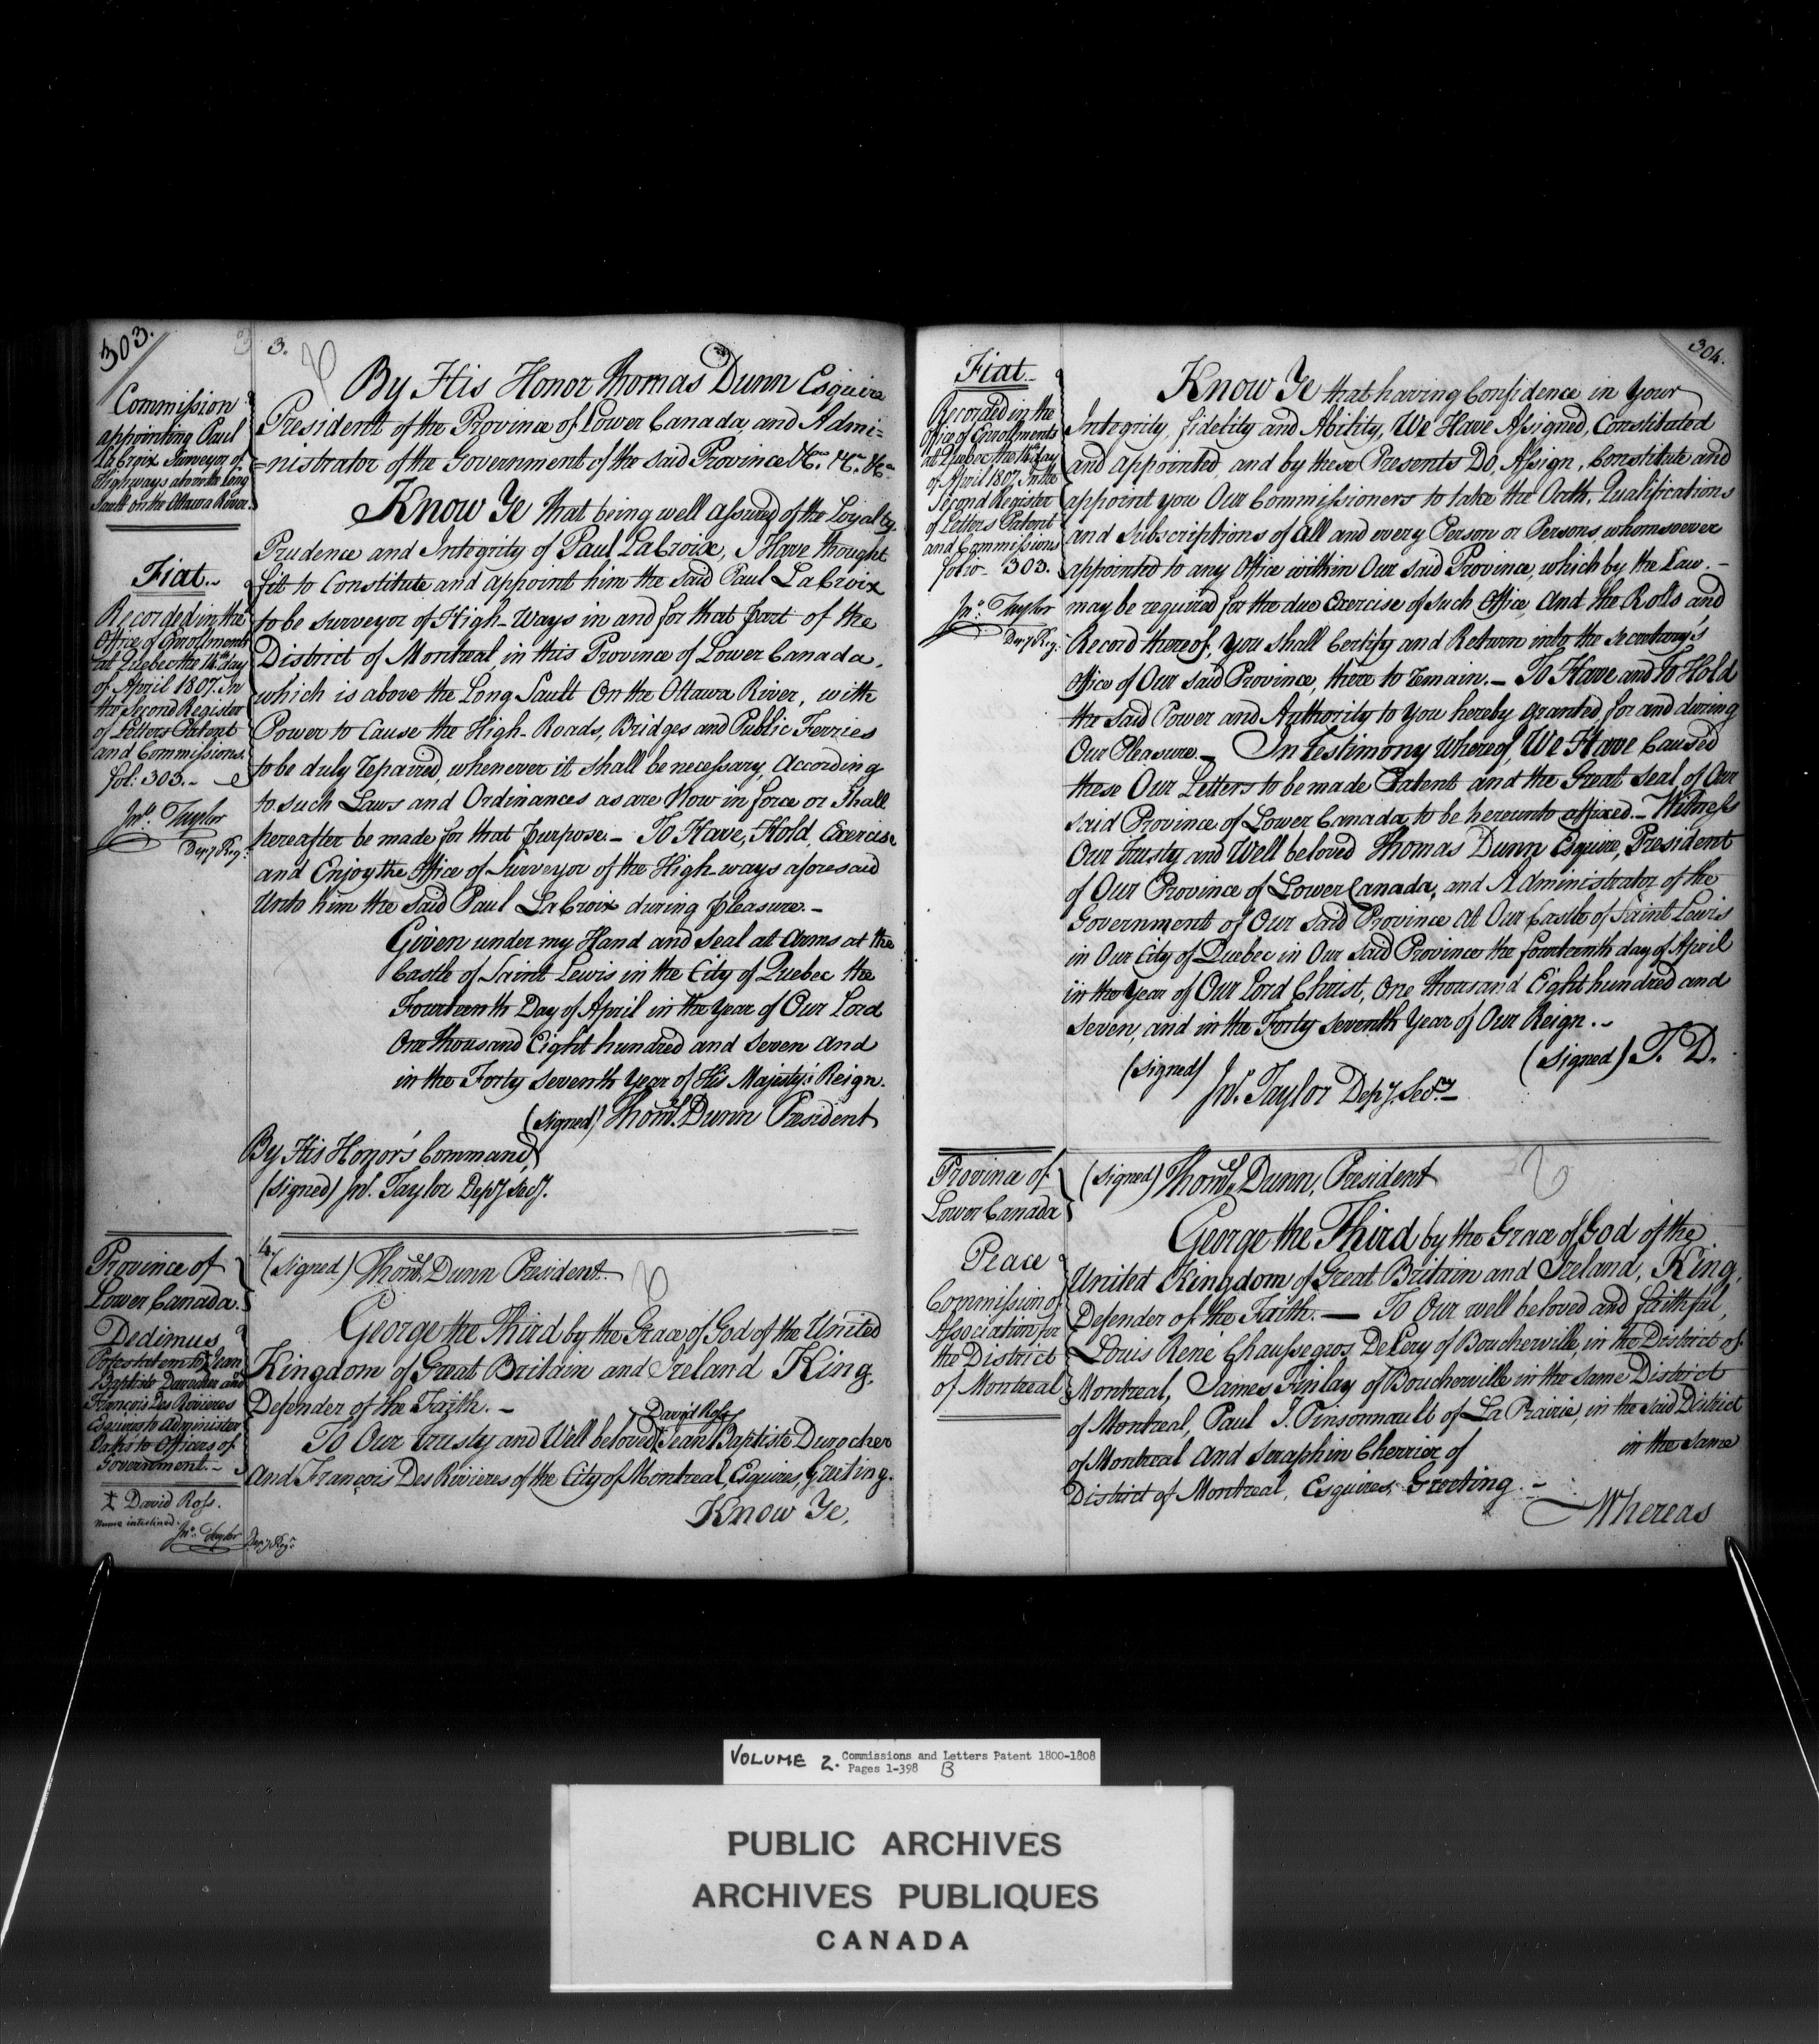 303.
3.
Commission
appointing Paul
LaCroix Surveyor of
Highways above the Long
Sault on the Ottawa River.
Fiat.
Recorded in the
Office of Enrollments
at Quebec the 14th day
of April 1807. In
the Second Register
of Letters Patent
and Commissions.
fol: 303.
Jno. Taylor
Depy Reg.
By His Honor Thomas Dunn Esquire
President of the Province of Lower Canada and Admi=
=nistrator of the Government of the said Province &ca. &ca. &ca.
Know Ye that being well assured of the Loyalty
Prudence and Integrity of Paul LaCroix, I Have thought
fit to Constitute and appoint him the said Paul LaCroix
to be Surveyor of High-Ways in and for that part of the
District of Montreal in this Province of Lower Canada,
which is above the Long Sault on the Ottawa River, with
Power to Cause the High-Roads, Bridges and Public Ferries
to be duly repaired, whenever it shall be necessary, According
to such Laws and Ordinances as are Now in force or Shall
hereafter be made for that purpose. – To Have, Hold, Exercise
and Enjoy the Office of Surveyor of the High ways aforesaid
Unto him the Said Paul LaCroix during pleasure. –
Given under my Hand and Seal at Arms at the
Castle of Saint Lewis in the City of Quebec the
Fourteenth Day of April in the Year of Our Lord
One thousand Eight hundred and Seven and
in the Forty Seventh Year of His Majesty's Reign.
(signed) Thoms. Dunn President
By His Honor's Command,
(signed) Jno. Taylor Depy Secy.
Province of
Lower Canada.
Dedimus
Potestatem to Jean
Baptiste Durocher and
François Des Rivieres
Esquires to Administer
Oaths to Officers of
Government. –
David Ross.
name interlined.
Jno. Taylor Depy Regr.
4.
(signed) Thoms. Dunn President.
George the Third by the Grace of God of the United
Kingdom of Great Britain and Ireland King,
Defender of the Faith. –
David Ross
To Our trusty and Well beloved Jean Baptiste Durocher
and François Des Rivieres of the City of Montreal, Esquires, Greeting.
Know Ye,
304.
Fiat.
Recorded in the
Office of Enrollments
at Quebec the 14th day
of April 1807. In the
Second Register
of Letters Patent
and Commissions
folio – 303.
Jno. Taylor
Depy Reg.
Know Ye that having Confidence in Your
Integrity, fidelity and Ability, We Have Assigned, Constituted
and appointed, and by these Presents Do, Assign, Constitute and
appoint you Our Commissioners to take the Oath, Qualifications
and Subscriptions of all and every Person or Persons, whomsoever
appointed to any Office within Our said Province, which by the Law. –
may be required for the due Exercise of such Office, and the Rolls and
Record thereof, you shall Certify and Return into the Secretary's
Office of Our said Province, there to remain. – To Have and To Hold
the said Power and Authority to You hereby granted, for and during
Our Pleasure. – In Testimony Whereof, We Have Caused
these Our Letters to be made Patent and the Great Seal of Our
said Province of Lower Canada, to be hereunto affixed. – Witness
Our trusty and Well beloved Thomas Dunn Esquire, President
of Our Province of Lower Canada, and Administrator of the
Government of Our said Province at Our Castle of Saint Lewis
in Our City of Quebec in Our said Province the fourteenth day of April
in the Year of Our Lord Christ, One thousand Eight hundred and
Seven, and in the Forty Seventh Year of Our Reign. –
(signed) T. D.
(signed)
Jno. Taylor Depy. Secry
Province of
Lower Canada
Peace
Commission of
Association for
the District
of Montreal
(signed) Thoms. Dunn, President
George the Third by the Grace of God of the
United Kingdom of Great Britain and Ireland, King,
Defender of the Faith. — To Our well beloved and faithful,
Louis René Chaussegros DeLery of Boucherville, in the District of
Montreal, James Finlay of Boucherville in the same District
of Montreal, Paul I. Pinsonnault of La Prairie, in the said District
of Montreal and Seraphin Cherrier of in the same
District of Montreal, Esquires, Greeting. –
Whereas
VOLUME 2. Commissions and Letters Patent 1800-1808
Pages 1-398 B
PUBLIC ARCHIVES
ARCHIVES PUBLIQUES
CANADA